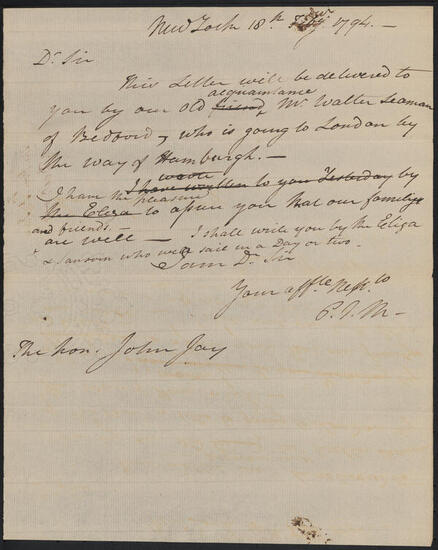 New York 18th 1794. —
Dr Sir
This Letter will be delivered to
acquaintance
you by our old friend, Mr Walter Seaman
of Bedford, who is going to London by
the way of Hamburgh. —
wrote
I have written to you Yesterday by
I have the pleasure
the Eliza to assure you that our familys
and friends. —
are well — I shall write you by the Eliza
& Sansom who will sail in a Day or two.
I am Dr Sir
Your affte
P. J. M —
The Hon. John Jay